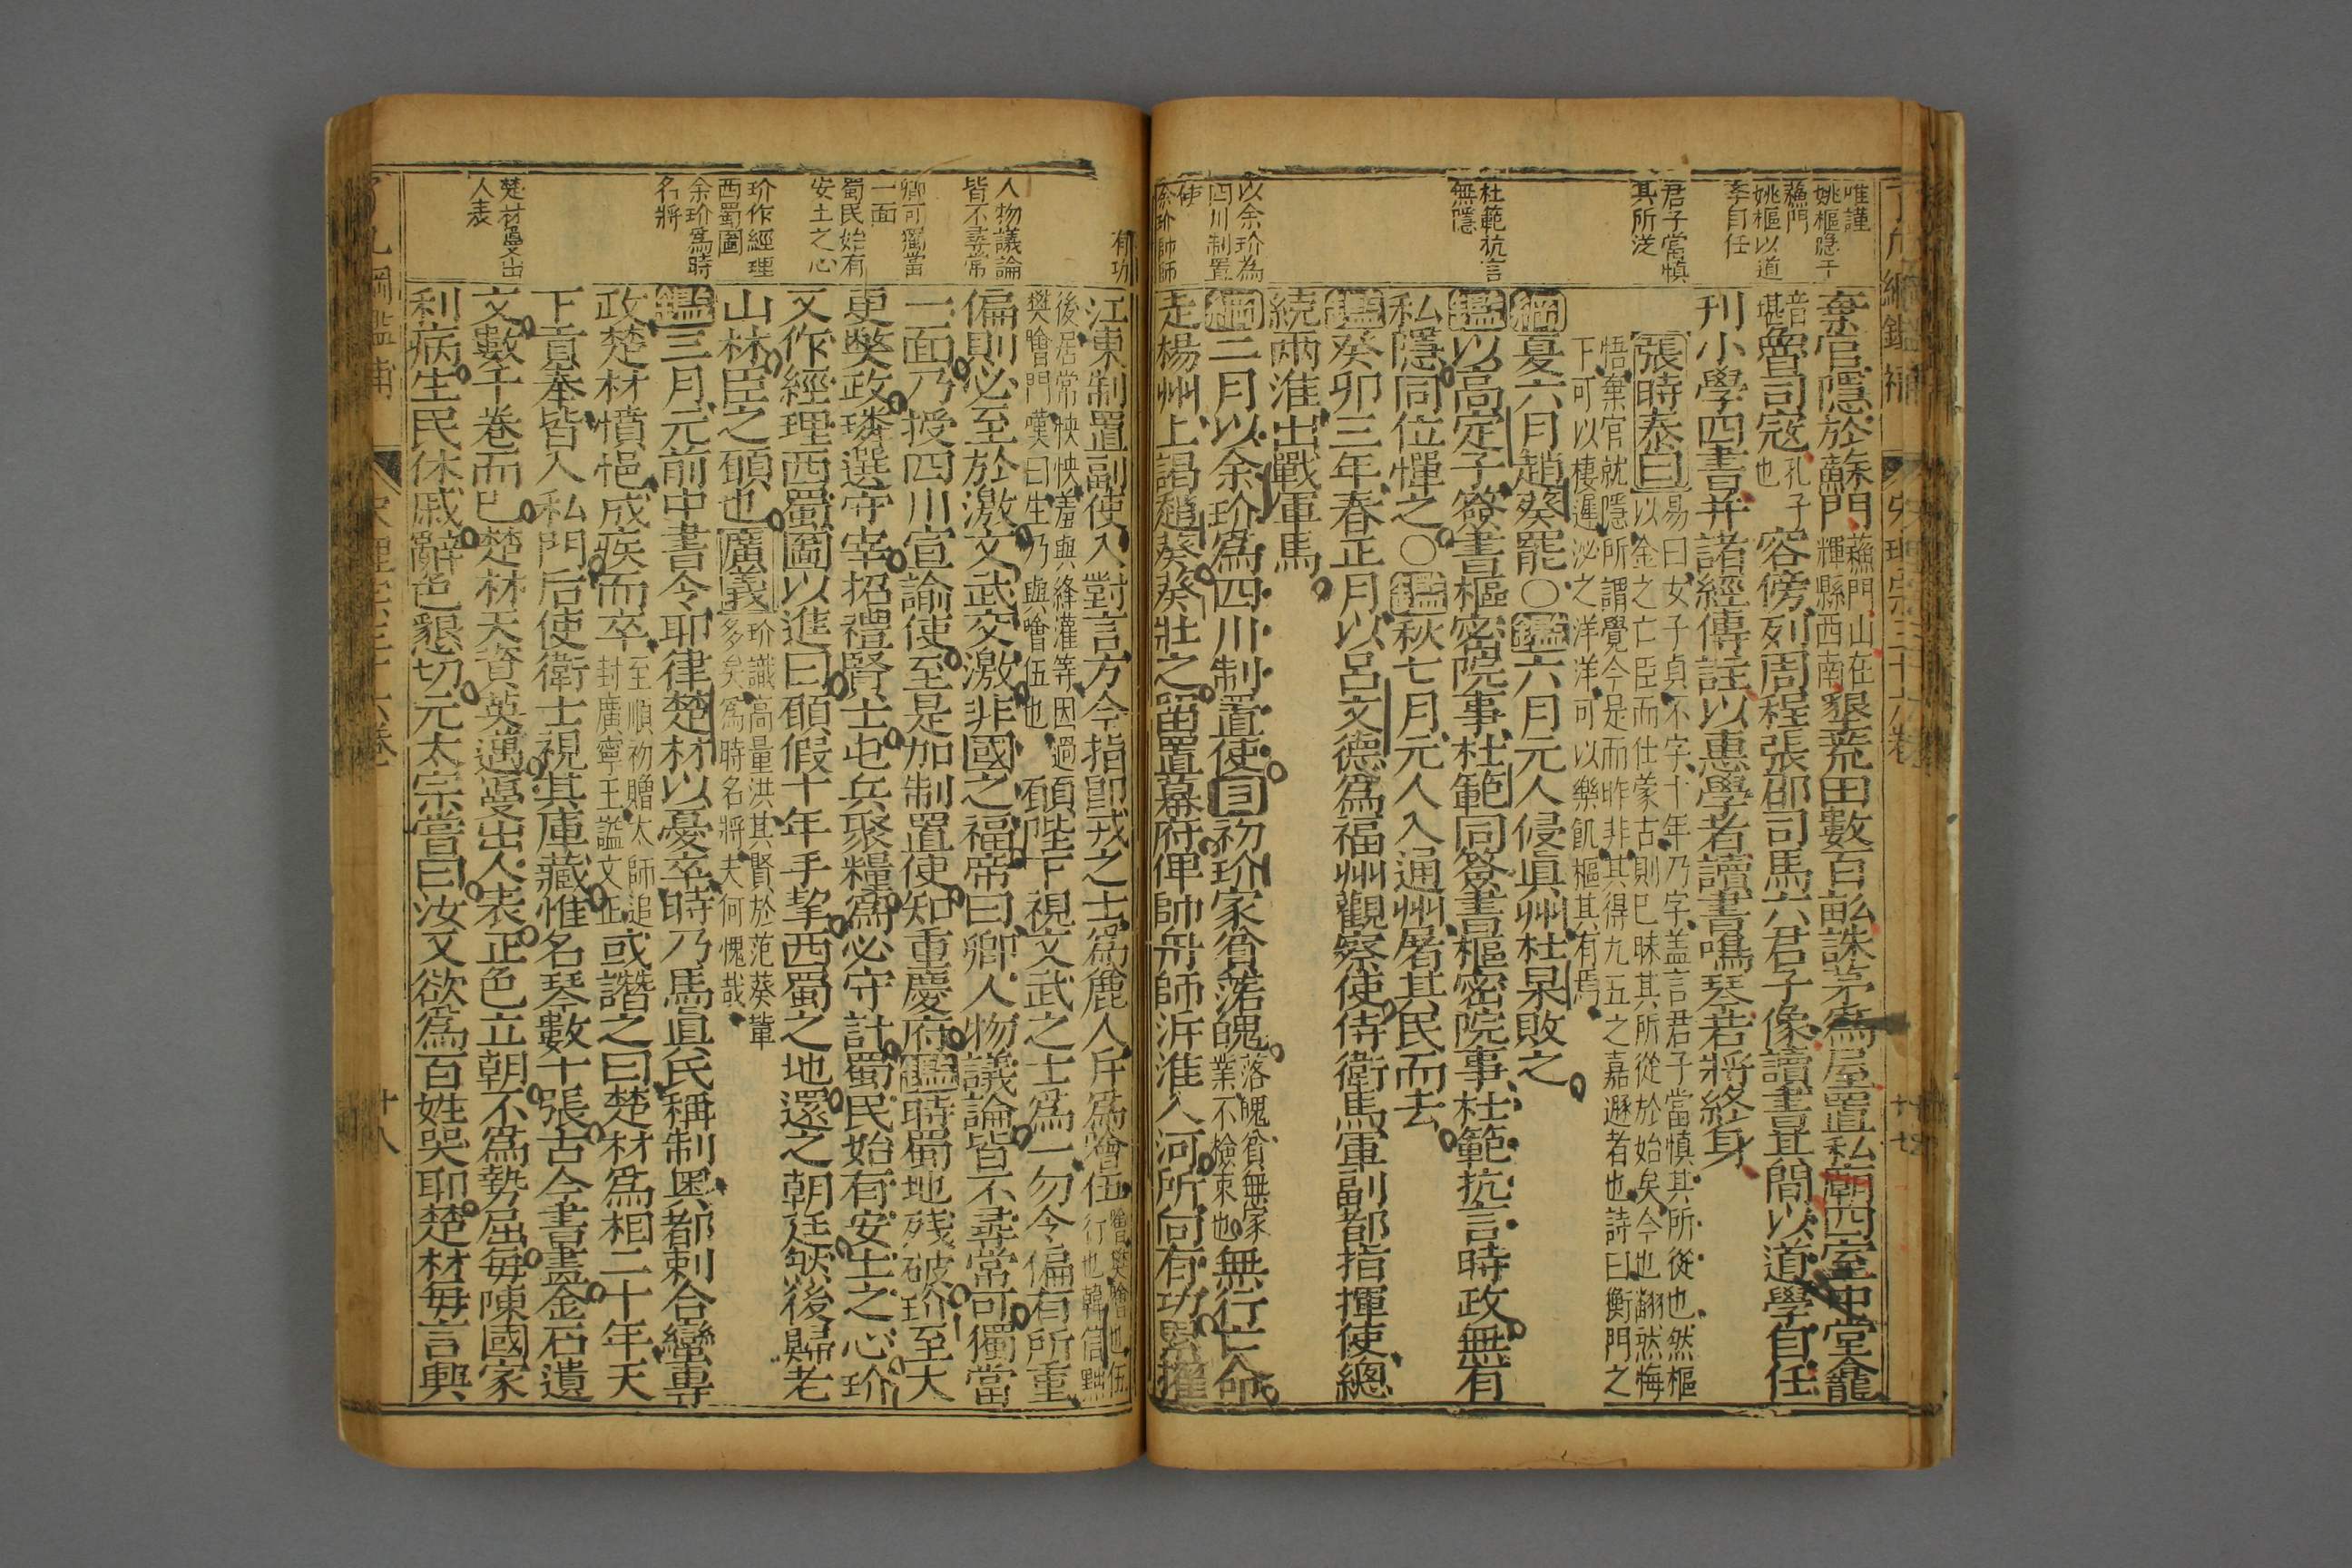 唯謹
姚樞隱于
蘇門
姚樞以道
學自任
君子當慎
其所從
杜範抗言
無隱
以余玠為
四川制置
使
余玠帥師
棄官隱於蘇門蘇門山在輝縣西南墾荒田數百畝誅茅為屋置私廟四室中堂龕
音堪魯司寇孔子也容傍列周程張邵司馬六君子像讀書其間以道學自任
刊小學四書并諸經傳註以惠學者讀書鳴琴若將終身
張時泰曰易曰女子貞不字十年乃字盖言君子當慎其所從也然樞
以金之亡臣而仕蒙古則已昧其所從於始矣今也翻然悔
悟棄官就隱所謂覺今是而昨非其得九五之嘉遯者也詩曰衡門之
下可以棲遲泌之洋洋可以樂飢樞其有焉
綱夏六月趙葵罷○鑑六月元人侵眞州杜杲敗之
鑑以高定子簽書樞密院事杜範同簽書樞密院事杜範抗言時政無有
私隱同位憚之○鑑秋七月元人入通州屠其民而去
鑑癸卯三年春正月以呂文德為福州觀察使侍衛馬軍副都指揮使總
統兩淮出戰軍馬
綱二月以余玠為四川制置使目初玠家貧落魄落魄貧無家業不檢束也無行亡命
走楊州上謁趙葵葵壯之留置幕府俾帥舟師泝淮入河所向有功累擢
有功
人物議論
皆不尋常
卿可獨當
一面
蜀民始有
安土之心
玠作經理
西蜀圖
余玠為時
名將
楚材夐出
人表
江東制置副使入對言方今指即戎之士為麄人斥為噲伍噲樊噲也伍行也韓信黜
後居常怏怏羞與絳灌等因過樊噲門嘆曰生乃與噲伍也願陛下視文武之士為一勿令偏有所重
偏則必至於激文武交激非國之福帝曰卿人物議論皆不尋常可獨當
一面乃授四川宣諭使至是加制置使知重慶府鑑時蜀地殘破玠至大
更獘政璘選守宰招禮賢士屯兵聚糧為必守計蜀民始有安土之心玠
又作經理西蜀圖以進曰願假十年手挈西蜀之地還之朝廷然後歸老
山林臣之願也廣義玠識高量洪其賢於范葵輩多矣為時名將夫何愧哉
鑑三月元前中書令耶律楚材以憂卒時乃馬眞氏稱制奧都剌合蠻專
政楚材憤悒成疾而卒至順初贈太師追封廣寧王謚文正或譖之曰楚材為相二十年天
下貢奉皆入私門后使衛士視其庫藏惟名琴數十張古今書畫金石遺
文數千卷而已楚材天資英邁夐出人表正色立朝不為勢屈每陳國家
利病生民休戚辭色懇切元太宗嘗曰汝又欲為百姓哭耶楚材每言興